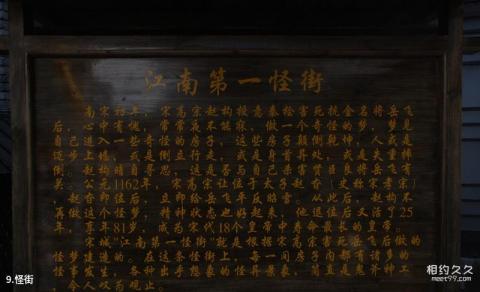 江南第一怪街
南宋初年，宋高宗赵构授意秦桧害死抗金名将岳飞
后，心中有愧，常常夜不能寐，做一个奇怪的梦，梦见
自己进入一些奇怪的房子，这些房子颠倒乾坤，人或是
徒步上墙，或是倒立行走，或是身首异处，或是失重倾
倒。赵构暗自寻思，这是否与自己杀害贤臣良将岳飞有
关。公元1162年，宋高宗让位于太子赵昚（史称宋孝宗），
赵昚即位后，立即给岳飞平反昭雪。从此后，赵构不
再做这个怪梦，精神状态也好起来，他退位后又活了25
年，享年81岁，成为宋代18个皇帝中寿命最长的皇帝。
宋城“江南第一怪街”就是根据宋高宗害死岳飞后做的
怪梦建造的。在这条怪街上，每一间房子内都有诸多的
怪事发生，各种出乎想象的怪异景象，简直是鬼斧神工
，令人叹为观止。
9.怪街
相约久久
meet99.com